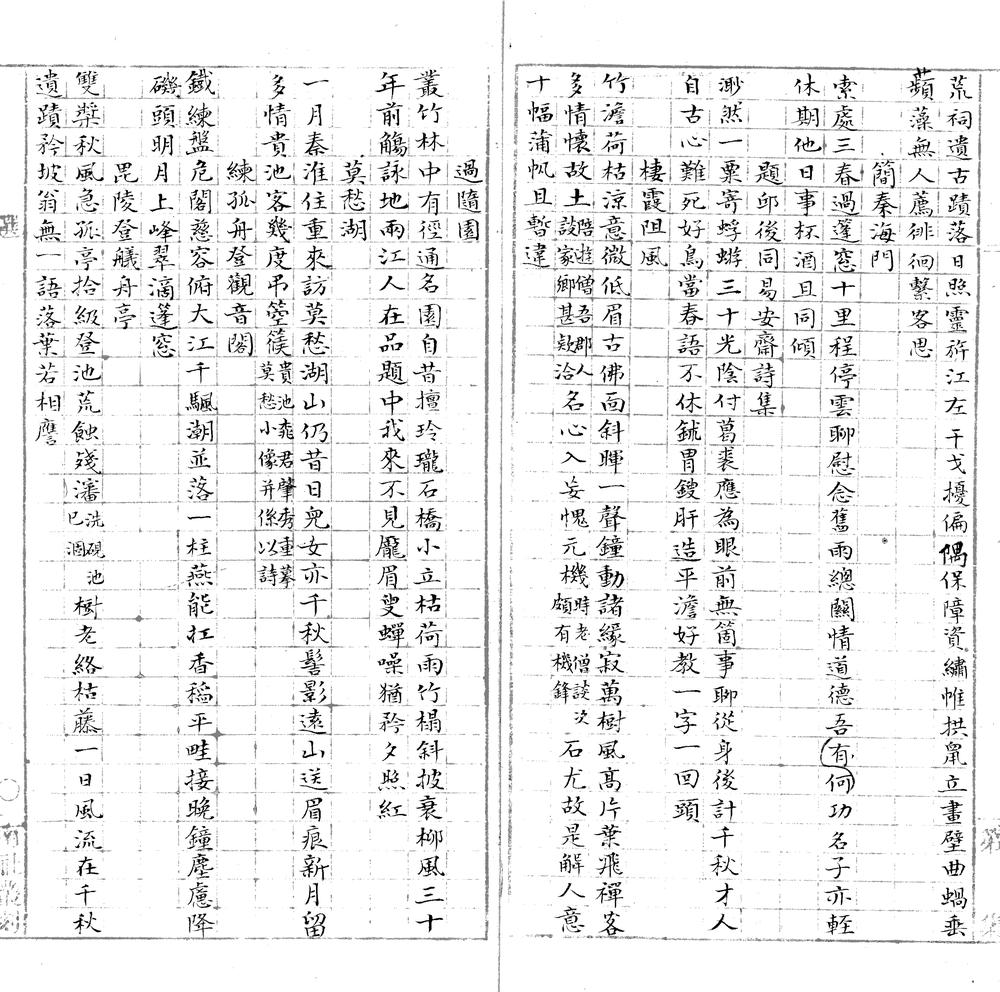 荒祠遺古蹟落日照靈旂江左干戈擾偏隅保障資繡帷拱鼠立畫壁曲蝸垂
蘋藻無人薦徘徊繫客思
簡秦海門
索處三春過蓬窓十里程停雲聊慰念舊雨總關情道德吾有何功名子亦輕
休期他日事杯酒且同傾
題邱後同易安齋詩集
渺然一粟寄蜉蝣三十光陰付葛裘應為眼前無箇事聊從身後計千秋才人
自古心難死好鳥當春語不休鉥胃鎪肝造平澹好教一字一回頭
棲霞阻風
竹澹荷枯涼意微低眉古佛面斜暉一聲鐘動諸緣寂萬樹風高片葉飛禪客
多情懷故土陪遊僧吾郡人談家鄉甚欵洽名心入妄愧元機時老僧談次頗有機鋒石尤故是解人意
十幅蒲帆且暫違
過隨園
叢竹林中有徑通名園自昔擅玲瓏石橋小立枯荷雨竹榻斜披衰柳風三十
年前觴詠地兩江人在品題中我來不見龎眉叟蟬噪猶矜夕照紅
莫愁湖
一月秦淮住重來訪莫愁湖山仍昔日兒女亦千秋髻影遠山送眉痕新月留
多情貴池客幾度弔箜篌貴池桒君肇秀重摹莫愁小像并係以詩
練孤舟登觀音閣
鐵練盤危閣慈容俯大江千颿潮並落一柱燕能扛香稻平畦接晚鐘塵慮降
磯頭明月上峰翠滴篷窓
毘陵登艤舟亭
雙槳秋風急孤亭拾級登池荒蝕殘瀋洗硯池已涸樹老絡枯藤一日風流在千秋
遺蹟矜坡翁無一語落葉若相譍
選